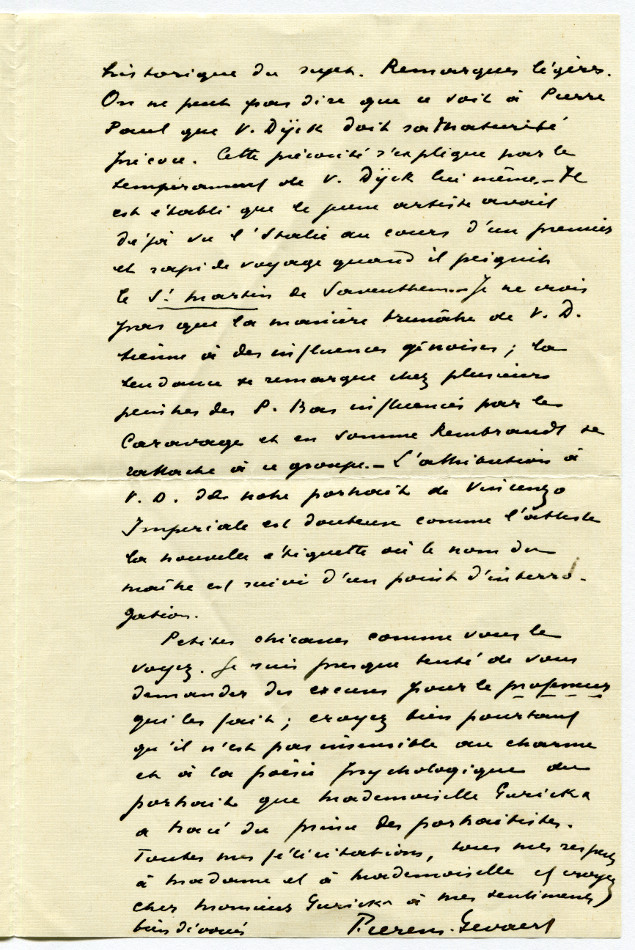 historique du sujet. Remarques légères.
On ne peut pas dire que ce soit à Pierre
Paul que V. Dijck doit sa maturité
précoce. Cette précocité s'explique par le
tempérament de V. Dijck lui même – Il
est établi que le jeune artiste avait
déjà vu l'Italie au cours d'un premier
et rapide voyage quand il peignit
le St martin de Saventhem – Je ne crois
pas que la manière brunâtre de V. D.
tienne à des influences génoises ; la
tendance se remarque chez plusieurs
peintres des P. Bas influencés par le
Caravage et en somme Rembrandt se
rattache à ce groupe. – L'attribution à
V. D. de notre portrait de Vincenzo
Imperiale est douteuse comme l'atteste
la nouvelle étiquette où le nom du
maître est suivi d'un point d'interro-
gation.
Petites chicanes comme vous le
voyez. Je suis presque tenté de vous
demander des excuses pour le professeur
qui les fait ; croyez bien pourtant
qu'il n'est pas insensible au charme
et à la poésie psychologique du
portrait que Mademoiselle Guricka
a tracé du prince des portraitistes.
Toutes mes félicitations, tous mes respects
à madame et à mademoiselle et croyez
cher monsieur Guricka à mes sentiments
bien dévoués Fierens-Gevaert